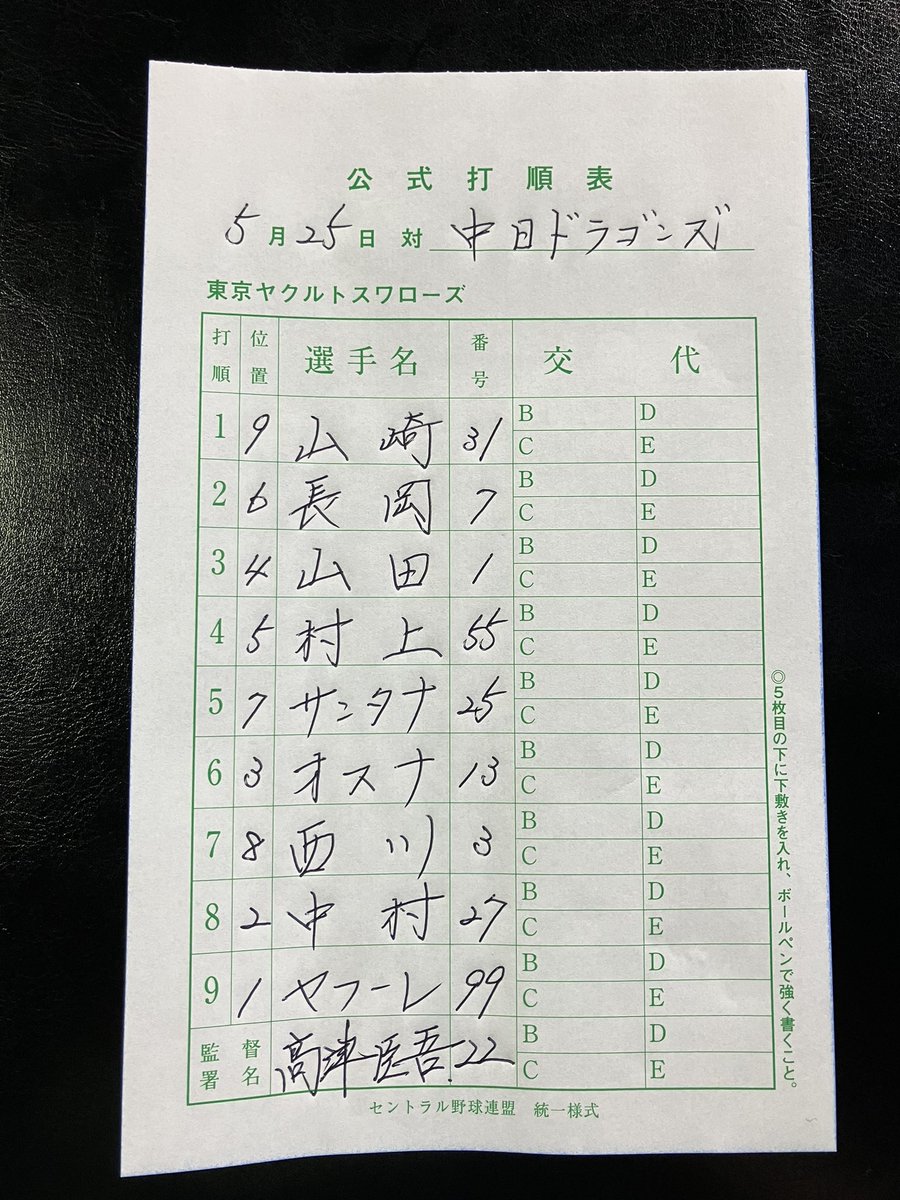 公式打順表
5月25日 対 中日ドラゴンズ
東京ヤクルトスワローズ
打順 位置 選手名 番号 交代
1 9 山崎 31 B D
C E
2 6 長岡 7 B D
C E
3 4 山田 1 B D
C E
4 5 村上 55 B D
C E
5 7 サンタナ 25 B D
C E
6 3 オスナ 13 B D
C E
7 8 西川 3 B D
C E
8 2 中村 27 B D
C E
9 1 ヤフーレ 99 B D
C E
監督署名 高津臣吾 22 B D
C E
セントラル野球連盟 統一様式
◎5枚目の下に下敷きを入れ、ボールペンで強く書くこと。